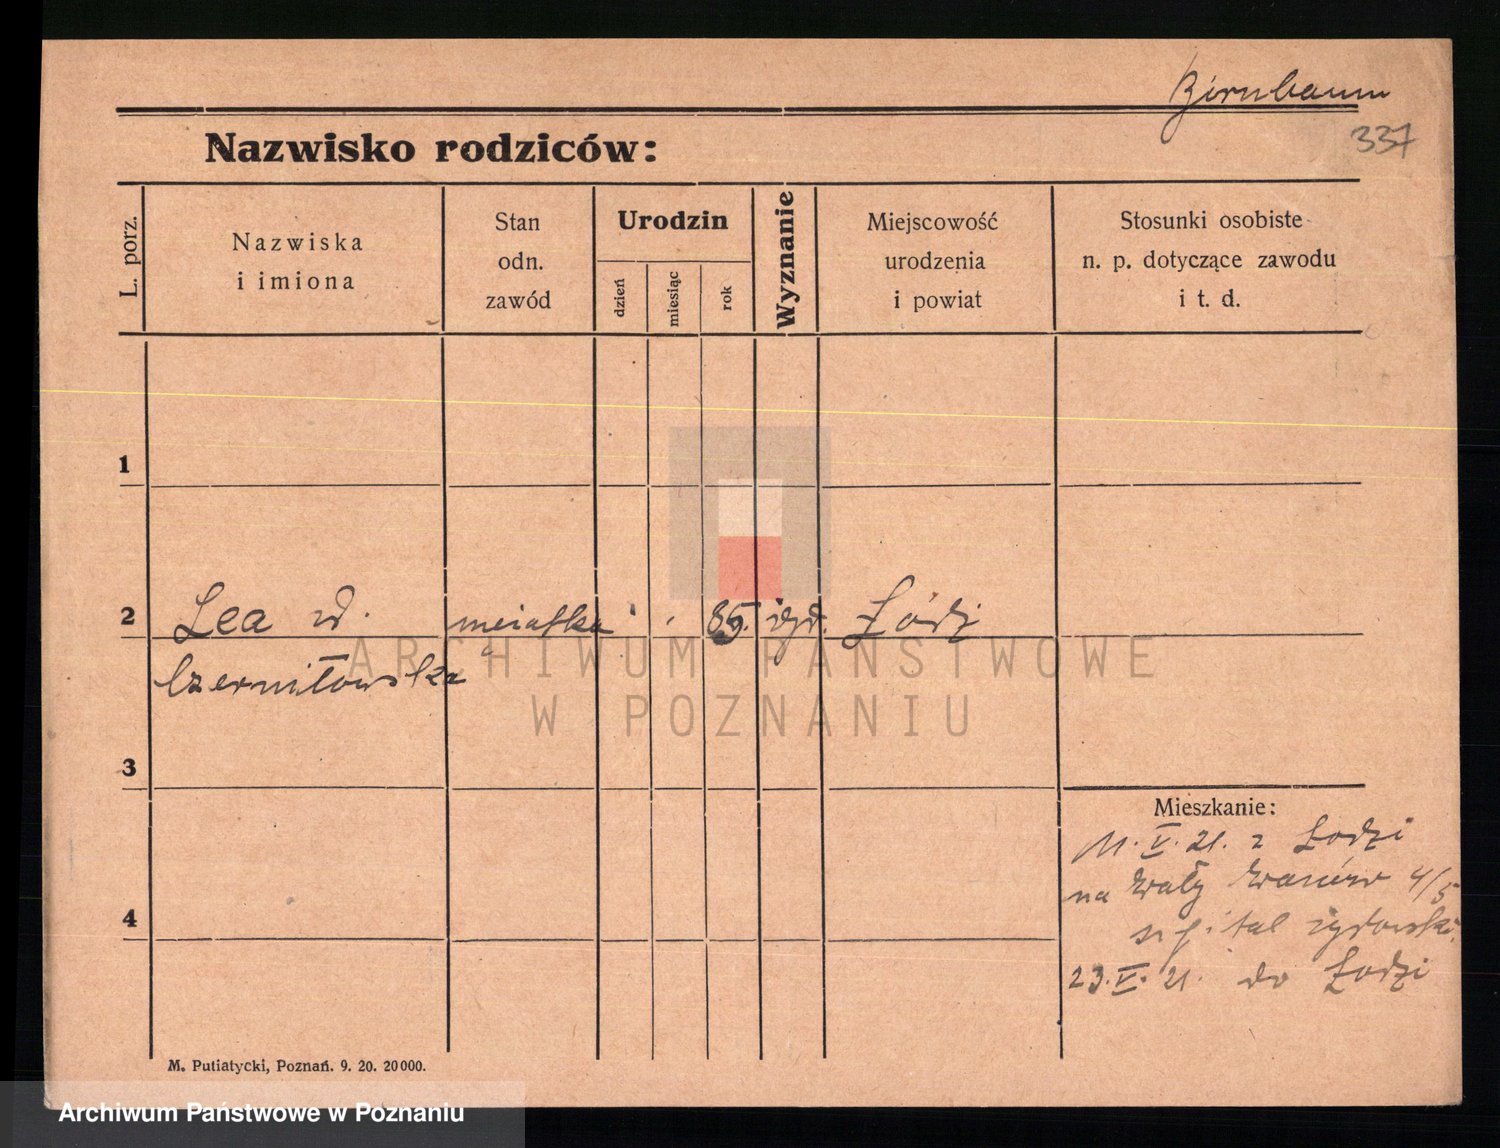 Birnbaum
337
Nazwisko rodziców:
L. porz.
Nazwiska
i imiona
Stan
odn.
zawód
Urodzin
dzień
miesiąc
rok
Wyznanie
Miejscowość
urodzenia
i powiat
Stosunki osobiste
n. p. dotyczące zawodu
i t. d.
1
2
Lea
85. Łódź
3
4
Mieszkanie:
11. V. 21. z Łodzi
na Wały 4/5
szpital żydowski.
23. V. 21. do Łodzi
M. Putiatycki, Poznań. 9. 20. 20000.
ARCHIWUM PAŃSTWOWE
W POZNANIU
Archiwum Państwowe w Poznaniu